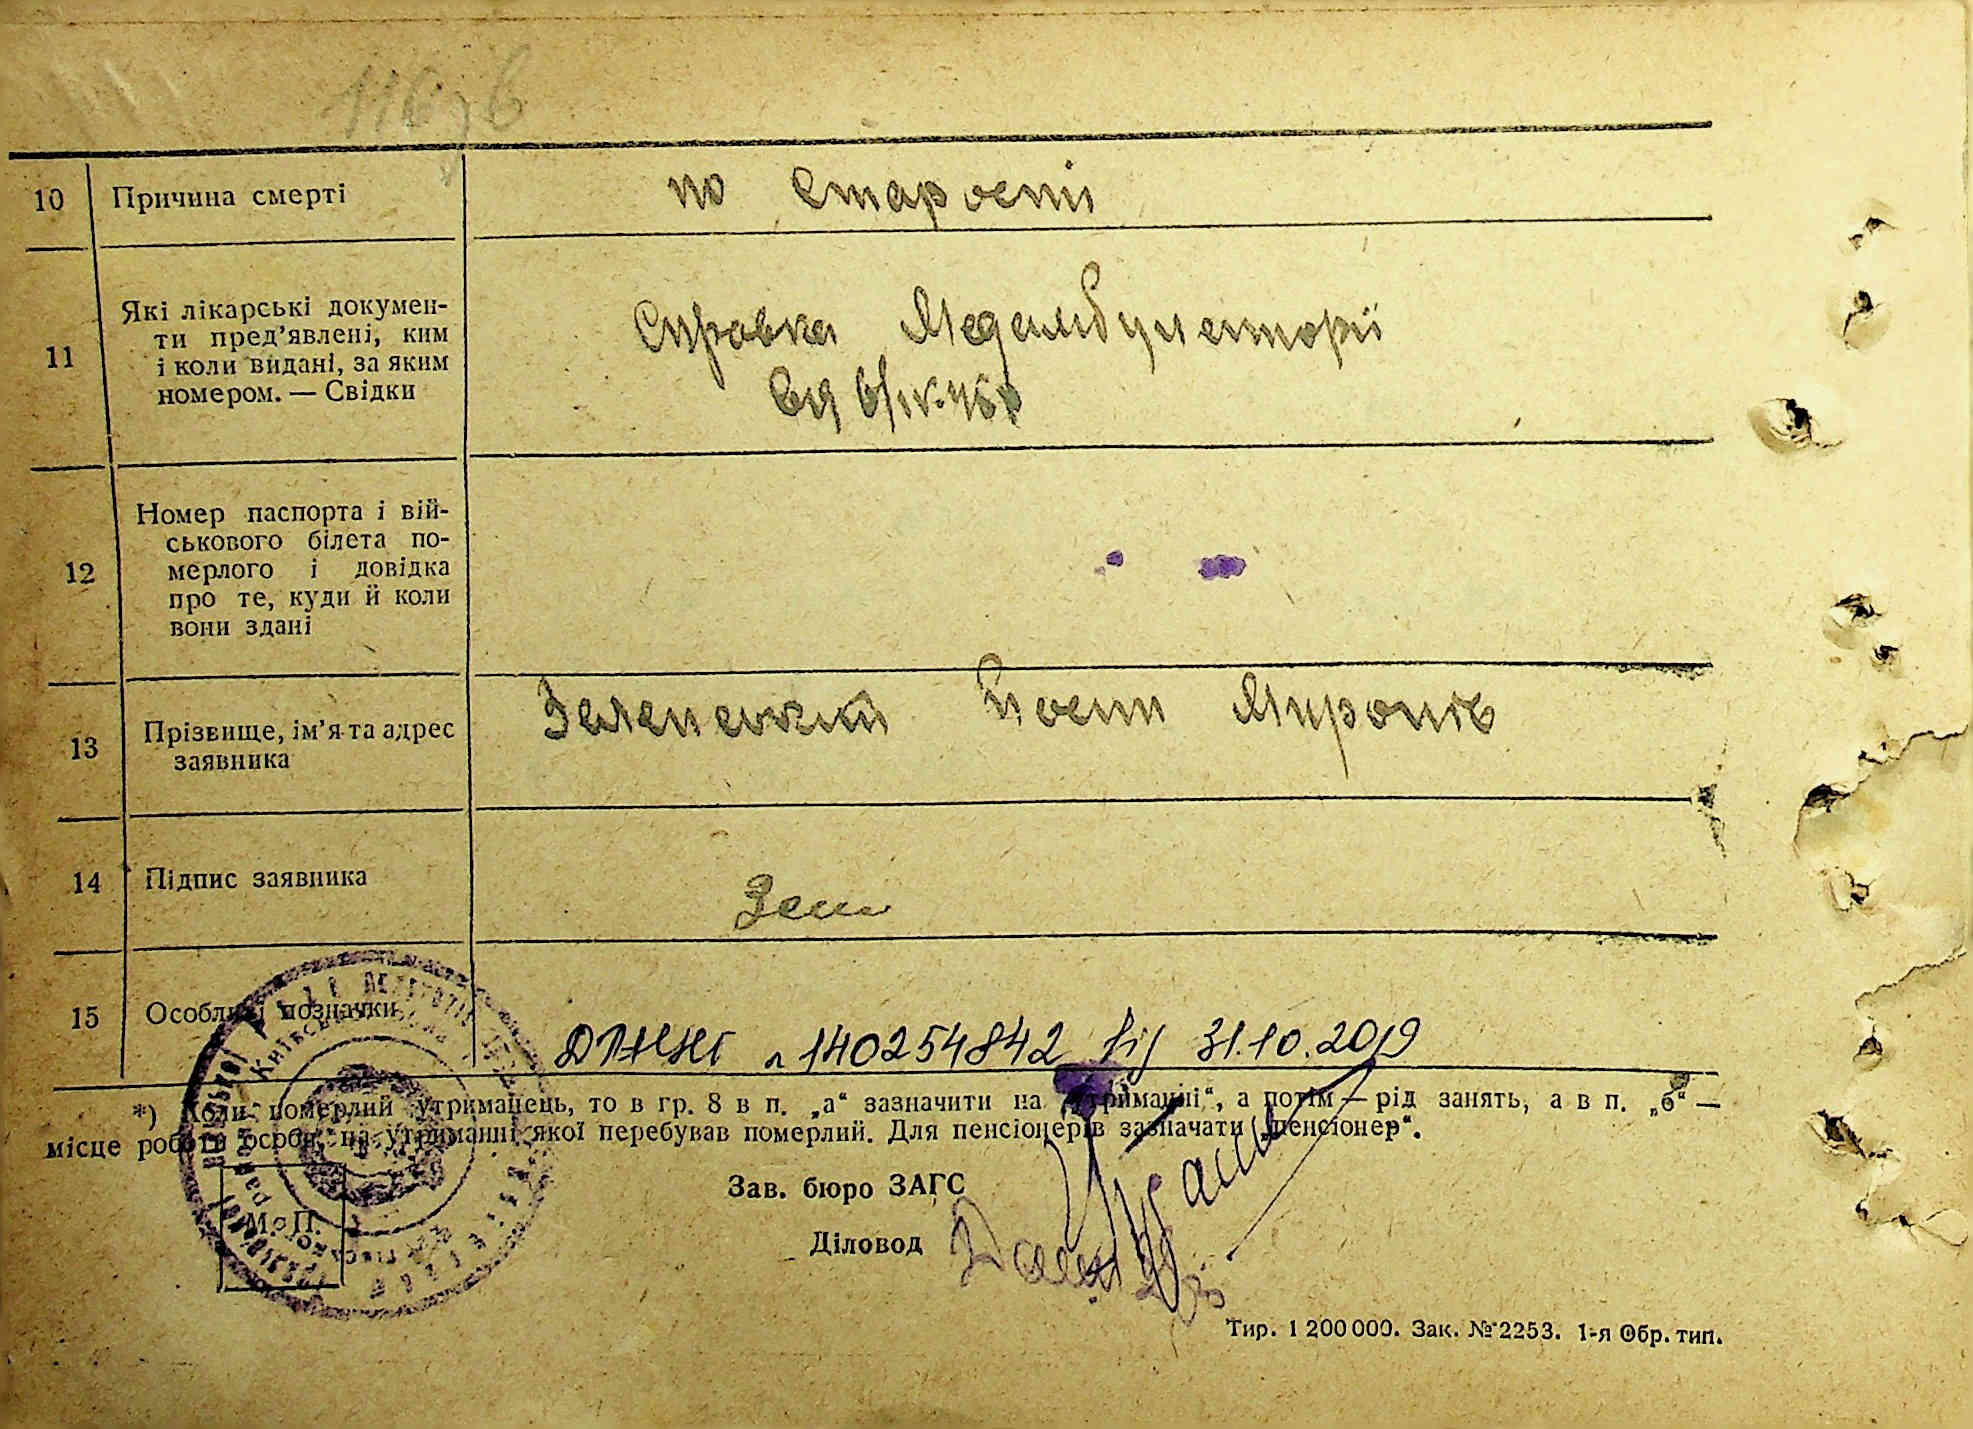 116
10 Причина смерті по старости
11 Які лікарські докумен-
ти пред’явлені, ким
і коли видані, за яким
номером. — Свідки
Справка Медамбулеторії
від 6/IV-46р
12 Номер паспорта і вій-
ськового білета по-
мерлого і довідка
про те, куди й коли
вони здані
13 Прізвище, ім’я та адрес
заявника
Зеленський Йосип Миронів
14 Підпис заявника Зел
15 Особливі позначки 140254842 від 31.10.2019
*) Коли померлий утриманець, то в гр. 8 в п. „а“ зазначити на утриманні“, а потім — рід занять, а в п. „б“ —
місце роботи особи, на утриманні якої перебував померлий. Для пенсіонерів зазначати „пенсіонер“.
Зав. бюро ЗАГС
Діловод
М. П.
Тир. 1 200 000. Зак. № 2253. 1-я Обр. тип.